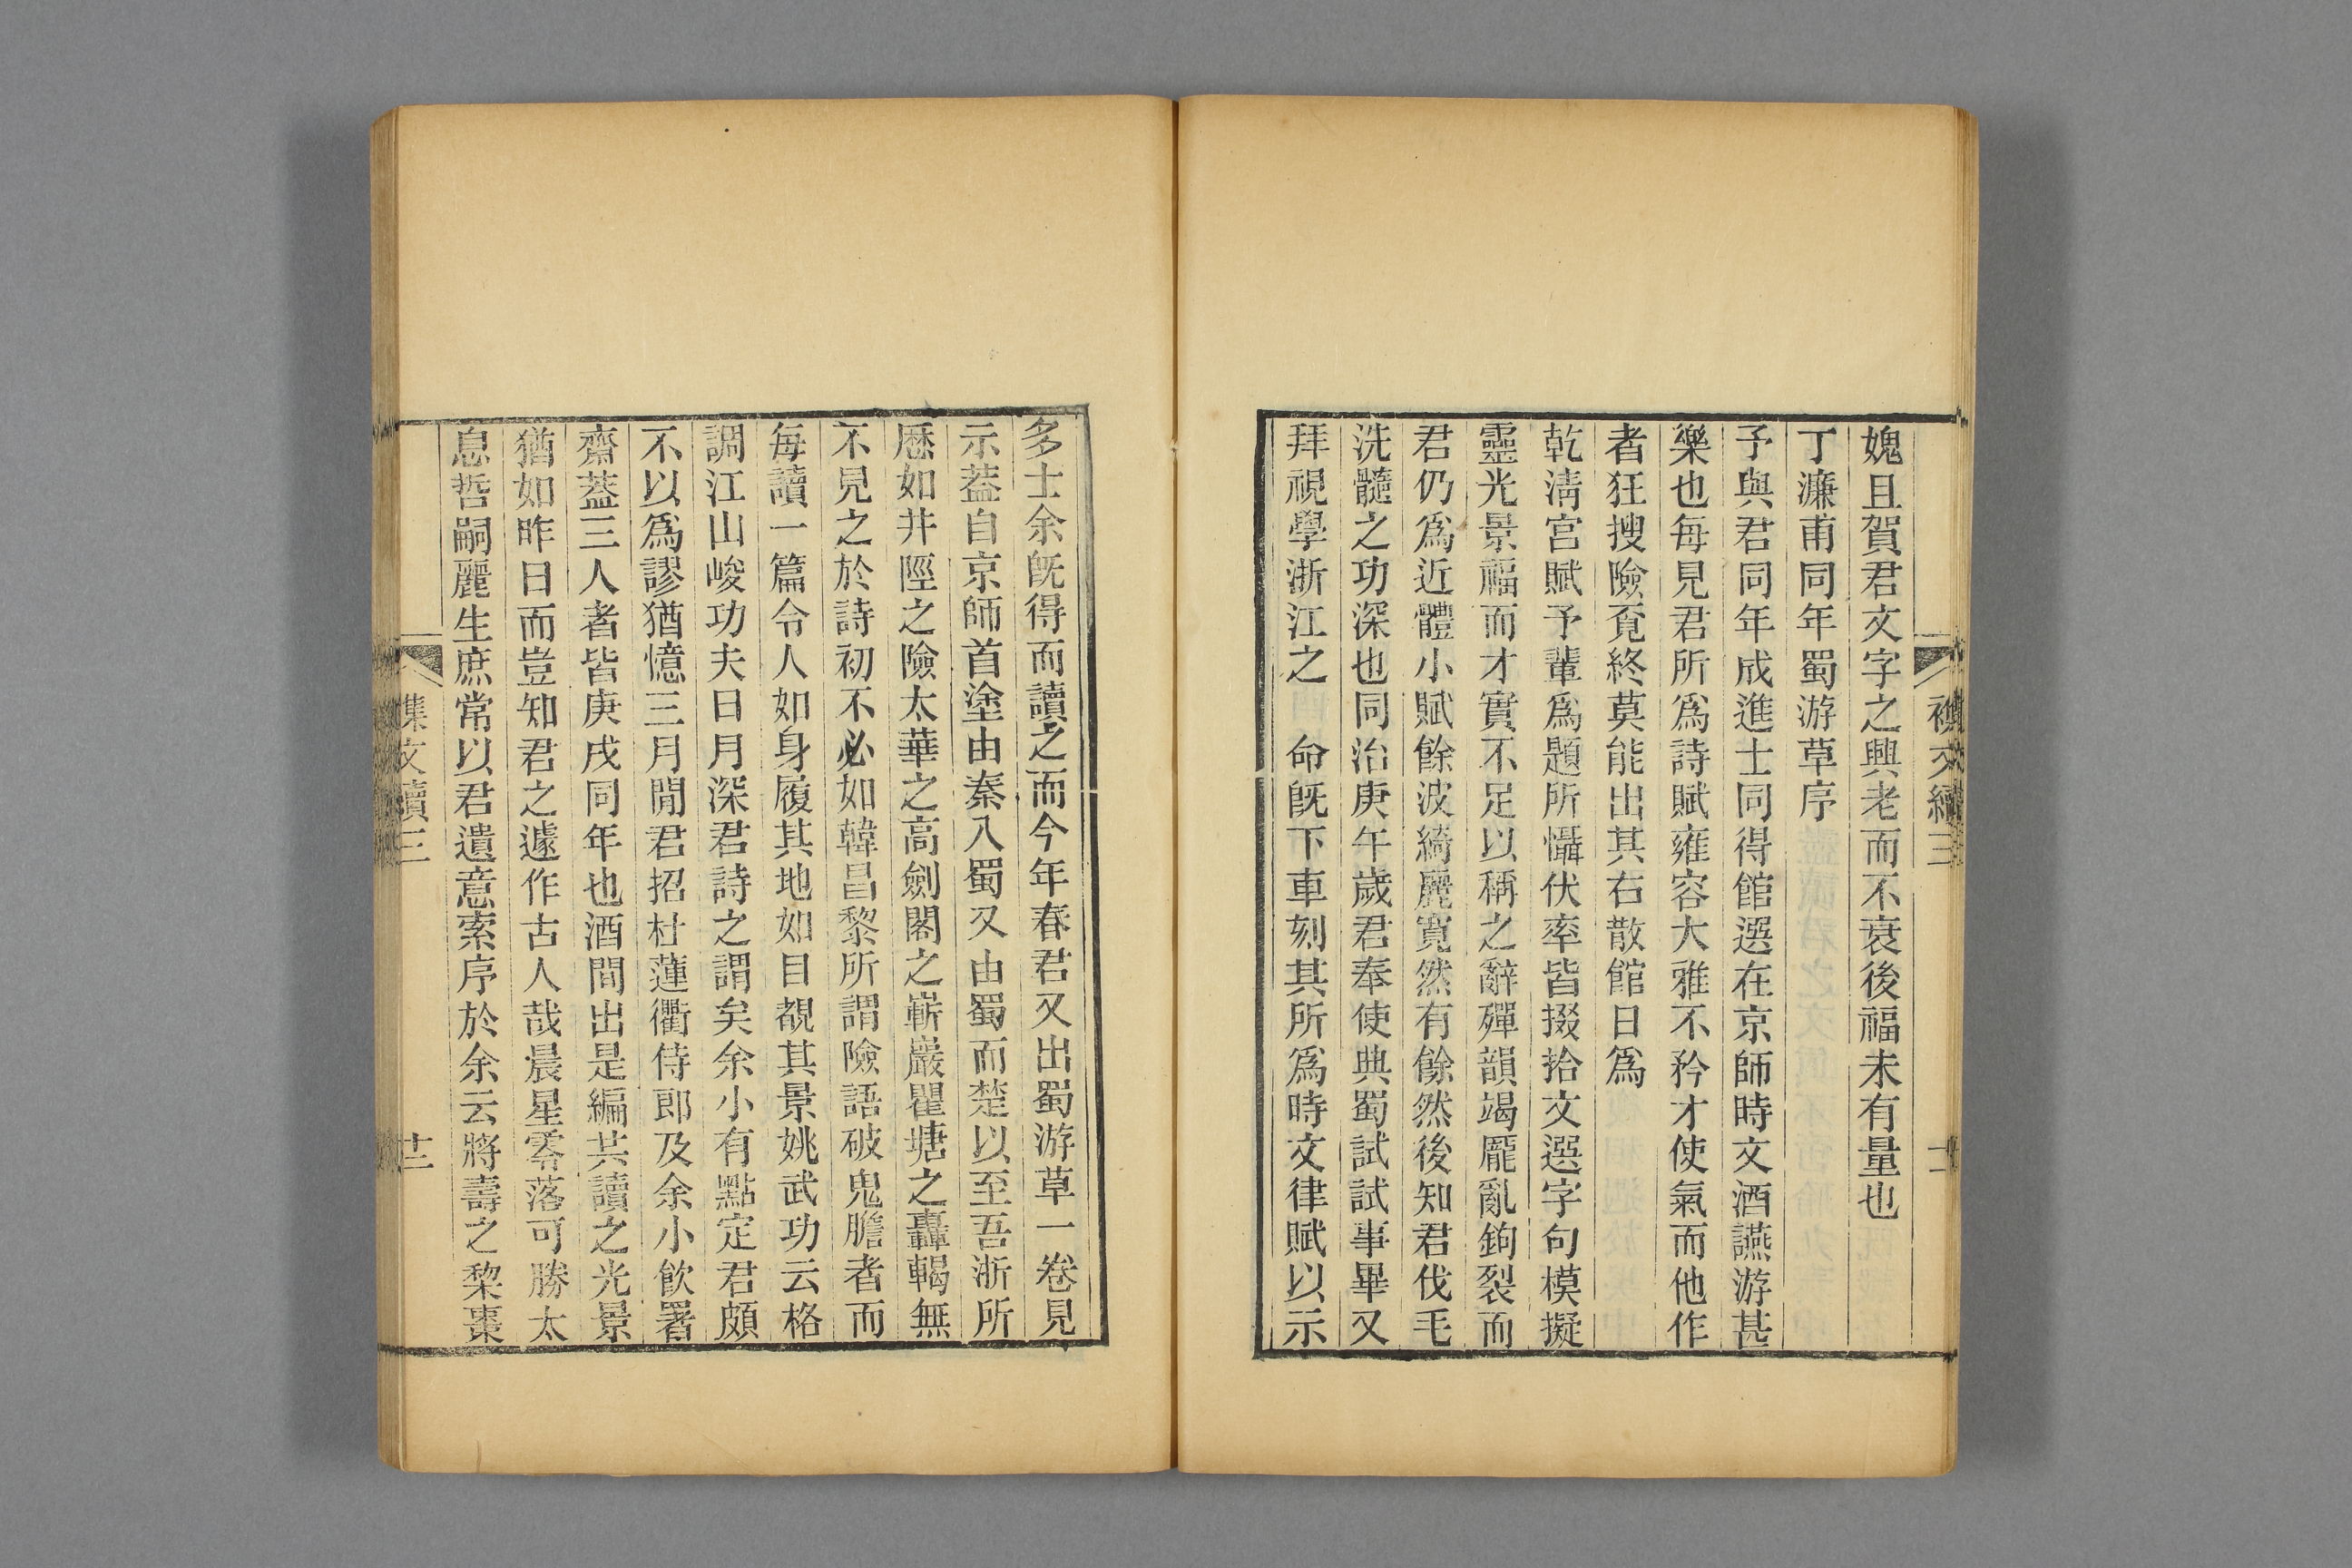 媿且賀君文字之興老而不衰後福未有量也
丁濂甫同年蜀游草序
予與君同年成進士同得館選在京師時文酒讌游甚
樂也每見君所爲詩賦雍容大雅不矜才使氣而他作
者狂搜險覔終莫能出其右散館日爲
乾淸宮賦予輩爲題所懾伏率皆掇拾文選字句模擬
靈光景福而才實不足以稱之辭殫韻竭龎亂鉤裂而
君仍爲近體小賦餘波綺麗寬然有餘然後知君伐毛
洗髓之功深也同治庚午歲君奉使典蜀試試事畢又
拜視學浙江之 命旣下車刻其所爲時文律賦以示
多士余旣得而讀之而今年春君又出蜀游草一卷見
示葢自京師首塗由秦入蜀又由蜀而楚以至吾浙所
厯如井陘之險太華之高劍閣之嶄巖瞿塘之轟輵無
不見之於詩初不必如韓昌黎所謂險語破鬼膽者而
每讀一篇令人如身履其地如目覩其景姚武功云格
調江山峻功夫日月深君詩之謂矣余小有點定君頗
不以爲謬猶憶三月閒君招杜蓮衢侍郎及余小飮署
齋葢三人者皆庚戌同年也酒間出是編共讀之光景
猶如昨日而豈知君之遽作古人哉晨星零落可勝太
息哲嗣麗生庶常以君遺意索序於余云將壽之棃棗
集文續三